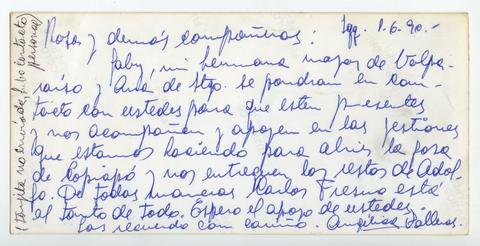 Rosa y demás compañeras: Iqq. 1.6.90.-
Gaby, mi hermana mayor de Valpa-
raíso y Ana de Stgo. se pondran en con-
tacto con ustedes para que esten presentes
y nos acompañen y apoyen en las gestiones
que estamos haciendo para abrir la fosa
de Copiapó y nos entreguen los restos de Adol-
fo. De todas maneras Carlos Fresno está
al tanto de todo. Espero el apoyo de ustedes.
Las recuerdo con cariño. Angélica Palleras.
(tarjeta no enviada, hubo contacto
personal)